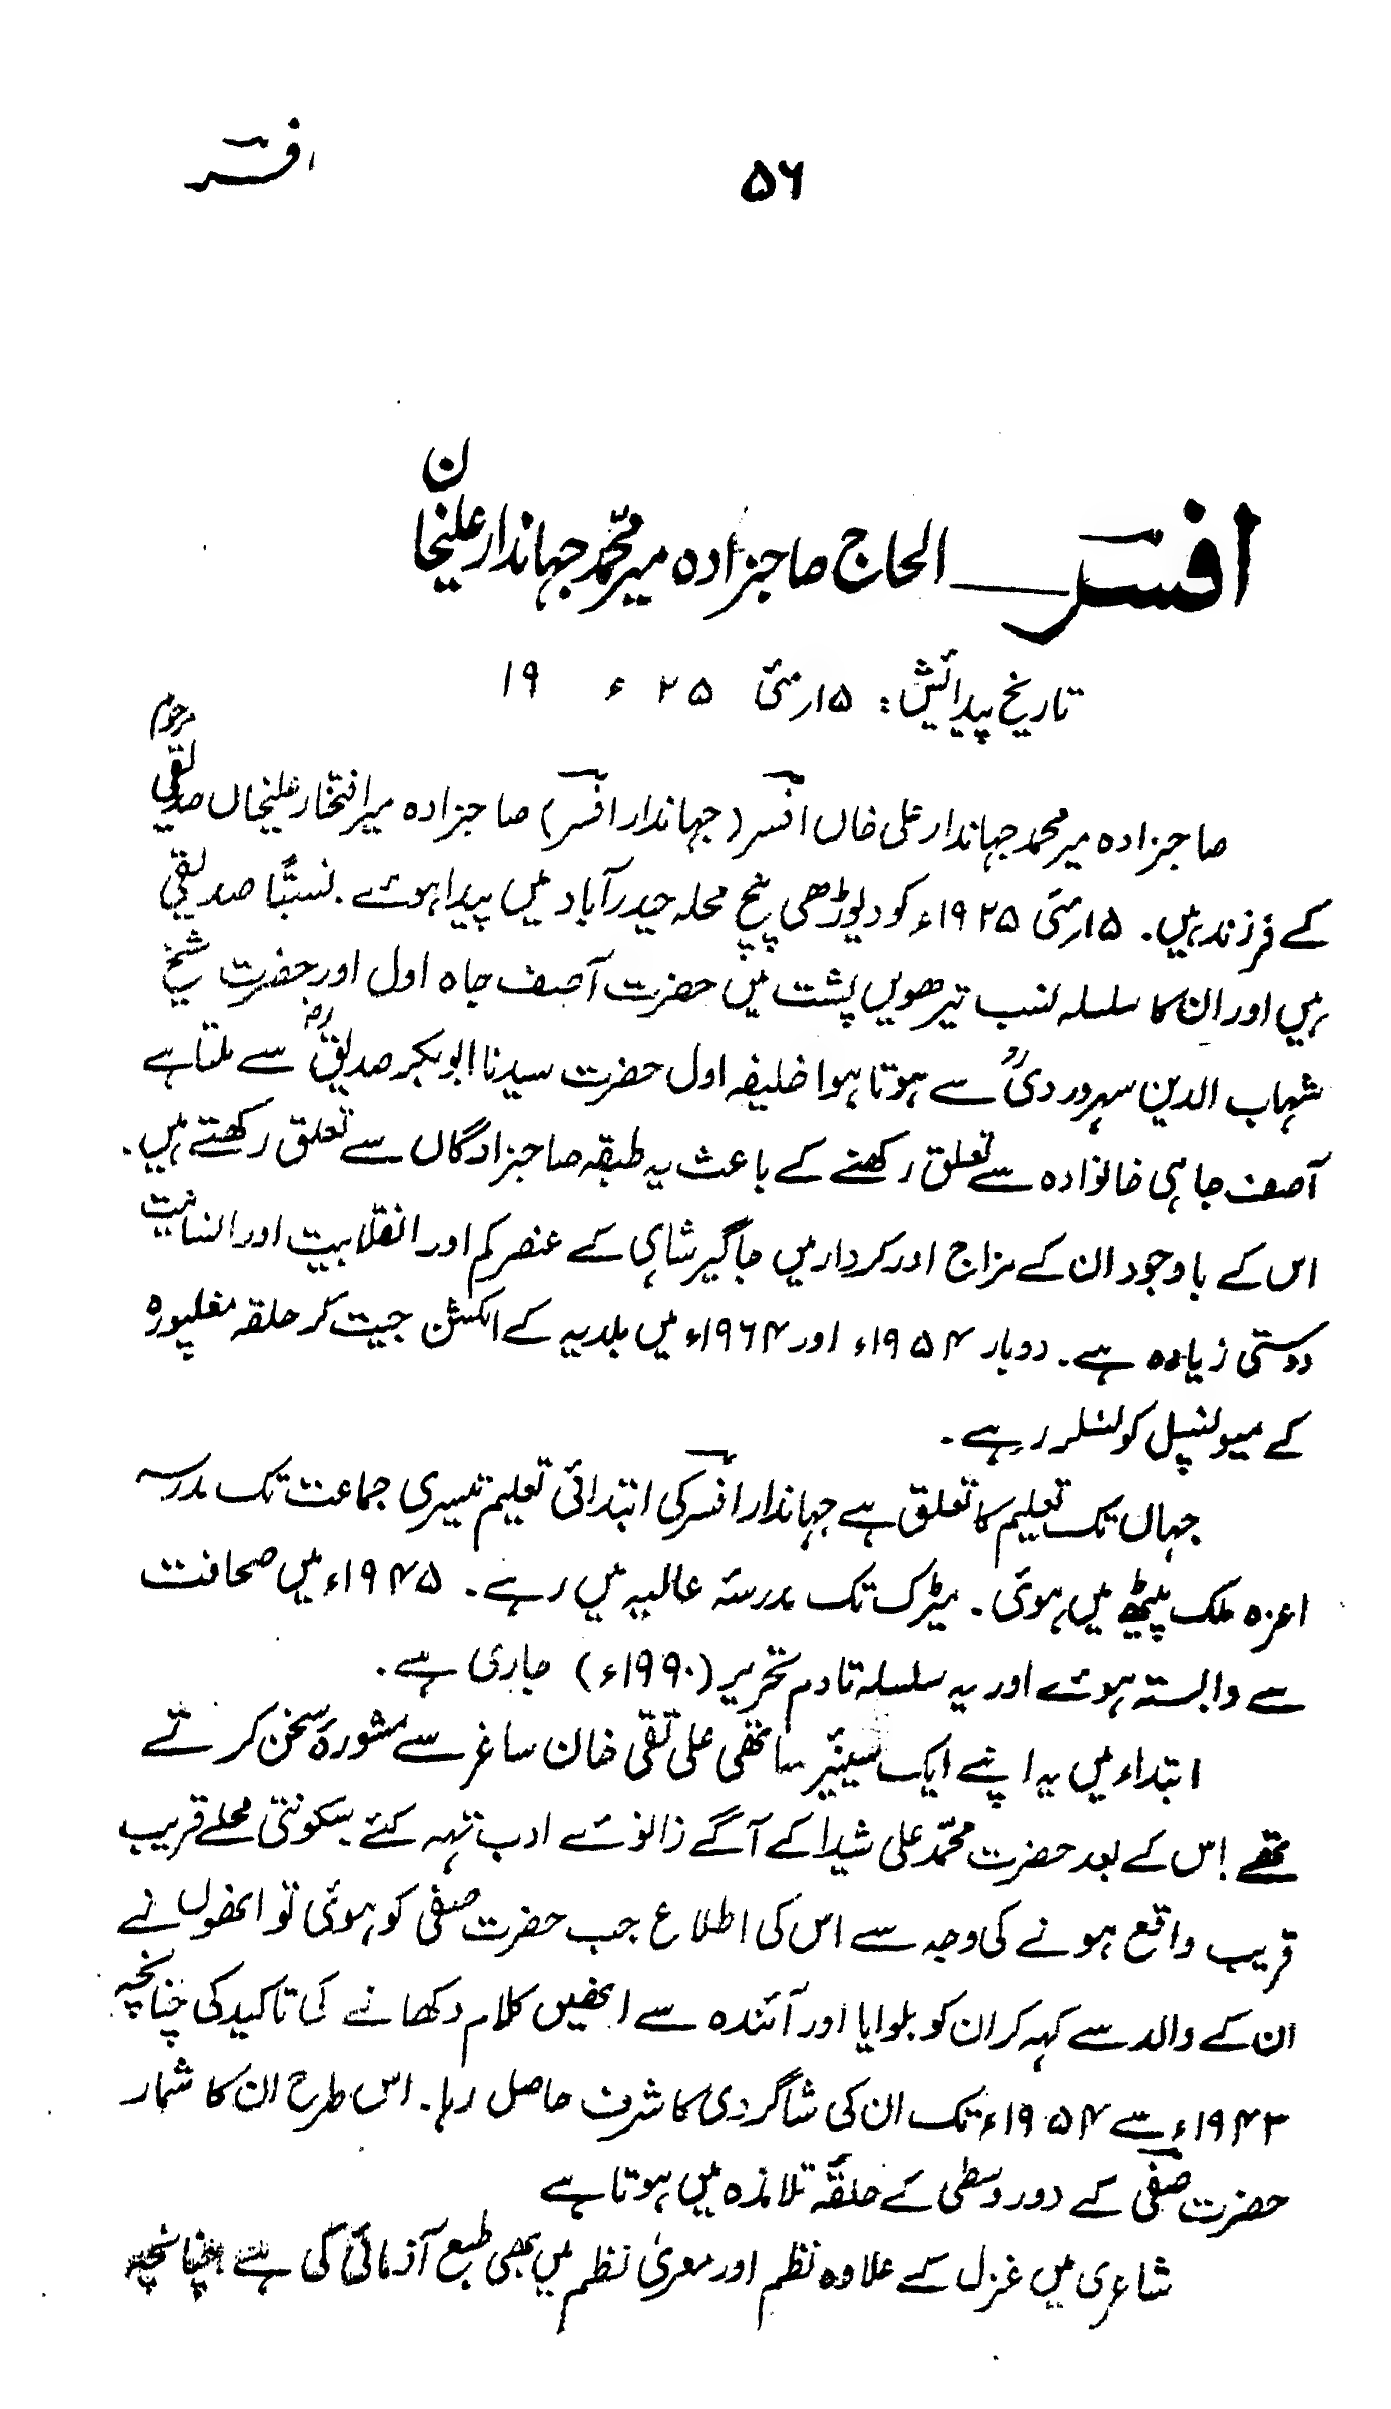 ۵۶
افسر
افسر ــــ الحاج صاحبزادہ میر محمد جہاندار علیخان
تاریخ پیدائش: ۱۵؍مئی ۲۵ ء ۱۹
صاحبزادہ میر محمد جہاندار علی خاں افسر (جہاندار افسر) صاحبزادہ میر افتخار علیخاں صدیقی مرحوم
کے فرزند ہیں۔ ۱۵؍مئی ۱۹۲۵ء کو دیوڑھی پنچ محلہ حیدرآباد میں پیدا ہوئے۔ نسبتاً صدیقی
ہیں اور ان کا سلسلہ نسب تیرھویں پشت میں حضرت آصف جاہ اول اور حضرت شیخ
شہاب الدین سہروردیؒ سے ہوتا ہوا خلیفہ اول حضرت سیدنا ابوبکر صدیقؓ سے ملتا ہے
آصف جاہی خانوادہ سے تعلق رکھنے کے باعث یہ طبقہ صاحبزادگاں سے تعلق رکھتے ہیں۔
اس کے باوجود ان کے مزاج اور کردار میں جاگیر شاہی کے عنصر کم اور انقلابیت اور انسانیت
دوستی زیادہ ہے۔ دوبار ۱۹۵۴ء اور ۱۹۶۴ء میں بلدیہ کے الکشن جیت کر حلقہ مغلپورہ
کے میونسپل کونسلر رہے۔
جہاں تک تعلیم کا تعلق ہے جہاندار افسر کی ابتدائی تعلیم تیسری جماعت تک مدرسہ
اعزہ ملک پیٹھ میں ہوئی۔ میٹرک تک مدرسۂ عالیہ میں رہے۔ ۱۹۴۵ء میں صحافت
سے وابستہ ہوئے اور یہ سلسلہ تادم تحریر (۱۹۹۰ء) جاری ہے۔
ابتداء میں یہ اپنے ایک سینیر ساتھی علی تقی خان ساغر سے مشورۂ سخن کرتے
تھے۔ اس کے بعد حضرت محمّد علی شیدا کے آگے زانوئے ادب تہہ کئے سکونتی محلے قریب
قریب واقع ہونے کی وجہ سے اس کی اطلاع جب حضرت صفی کو ہوئی تو انھوں نے
ان کے والد سے کہہ کر ان کو بلوایا اور آئندہ سے انھیں کلام دکھانے کی تاکید کی چنانچہ
۱۹۴۳ء سے ۱۹۵۴ء تک ان کی شاگردی کا شرف حاصل رہا۔ اس طرح ان کا شمار
حضرت صفی کے دور وسطی کے حلقۂ تلامذہ میں ہوتا ہے
شاعری میں غزل کے علاوہ نظم اور معریٰ نظم میں بھی طبع آزمائی کی ہے چنانچہ